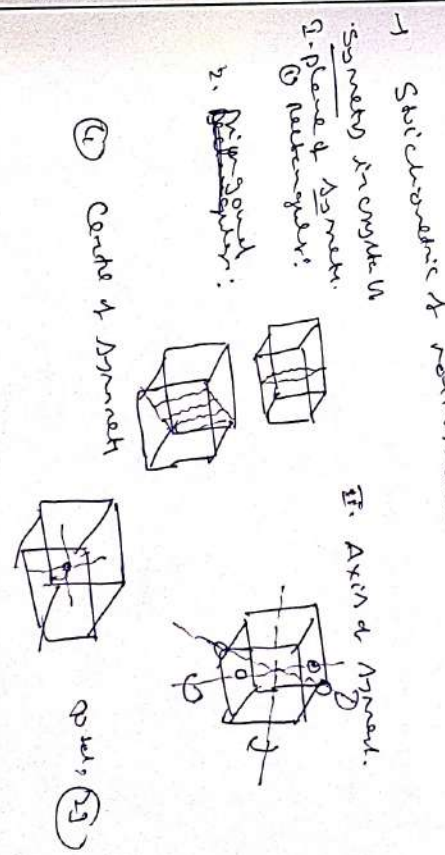 → Stoichiometric &
Symmetry in crystals
I. plane of symmetry.
① Rectangular:
2. Diagonal
:
II. Axis of symmetry.
④ Centre of symmetry